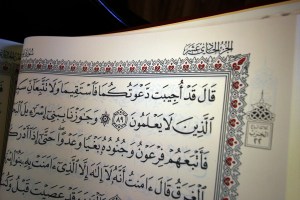 الجزء الحادي عشر
قَالَ قَدْ أُجِيبَت دَّعْوَتُكُمَا فَٱسْتَقِيمَا وَلَا تَتَّبِعَآنِّ
ٱلَّذِينَ لَا يَعْلَمُونَ ٨٩ وَجَٰوَزْنَا بِبَنِىٓ إِسْرَٰٓءِيلَ
فَأَتْبَعَهُمْ فِرْعَوْنُ وَجُنُودُهُۥ بَغْيًا وَعَدْوًا حَتَّىٰٓ إِذَآ
ٱلْغَرَقُ قَالَ ءَامَنتُ أَنَّهُۥ لَآ إِلَٰهَ إِلَّا ٱلَّذِىٓ ءَامَنَتْ بِهِۦ
عَصَيْتَ قَبْلُ